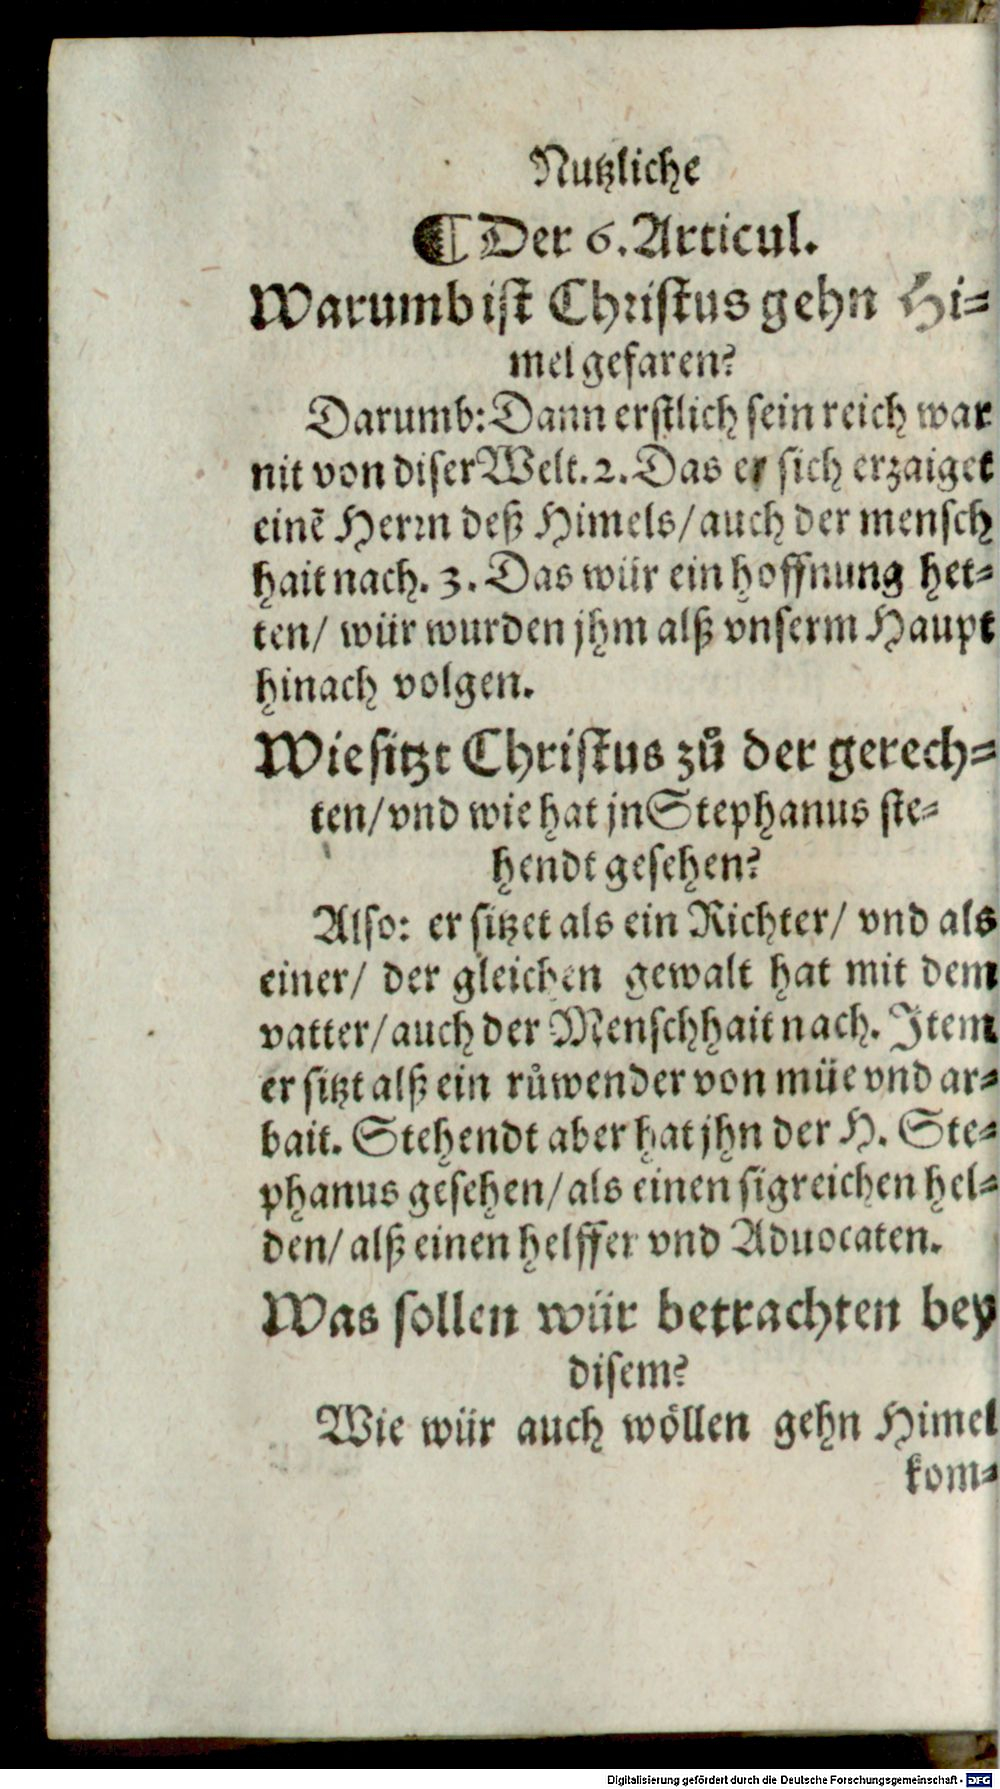 Nutzliche
¶ Der 6. Articul.
Warumb ist Christus gehn Hi-
mel gefaren?
Darumb: Dann erstlich sein reich war
nit von diser Welt. 2. Das er sich erzaiget
einẽ Herrn deß Himels/ auch der mensch
hait nach. 3. Das wür ein hoffnung het-
ten/ wür wurden jhm alß vnserm Haupt
hinach volgen.
Wie sitzt Christus zů der gerech-
ten/ vnd wie hat jn Stephanus ste-
hendt gesehen?
Also: er sitzet als ein Richter/ vnd als
einer/ der gleichen gewalt hat mit dem
vatter/ auch der Menschhait nach. Item
er sitzt alß ein růwender von müe vnd ar-
bait. Stehendt aber hat jhn der H. Ste-
phanus gesehen/ als einen sigreichen hel-
den/ alß einen helffer vnd Aduocaten.
Was sollen wür betrachten bey
disem?
Wie wür auch wöllen gehn Himel
kom-
Digitalisierung gefördert durch die Deutsche Forschungsgemeinschaft - DFG